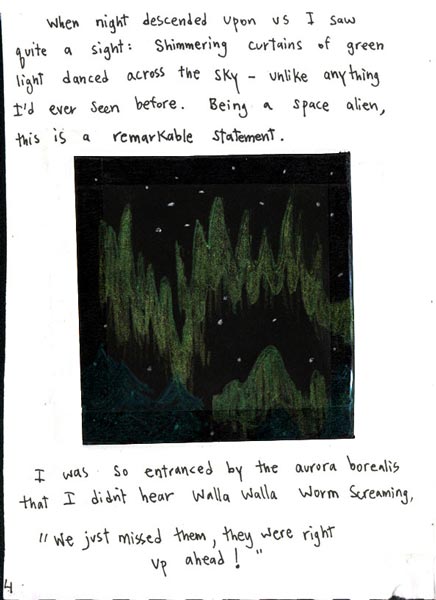 When night descended upon us I saw
quite a sight: Shimmering curtains of green
light danced across the sky - unlike anything
I'd ever seen before. Being a space alien,
this is a remarkable statement.
I was so entranced by the aurora borealis
that I didn't hear Walla Walla Worm Screaming,
"We just missed them, they were right
up ahead!"
4